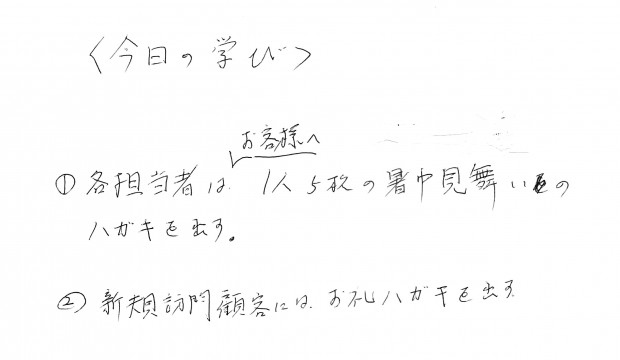 〈今日の学び〉
お客様へ
① 各担当者は、1人5枚の暑中見舞いの
ハガキを出す。
② 新規訪問顧客には、お礼ハガキを出す